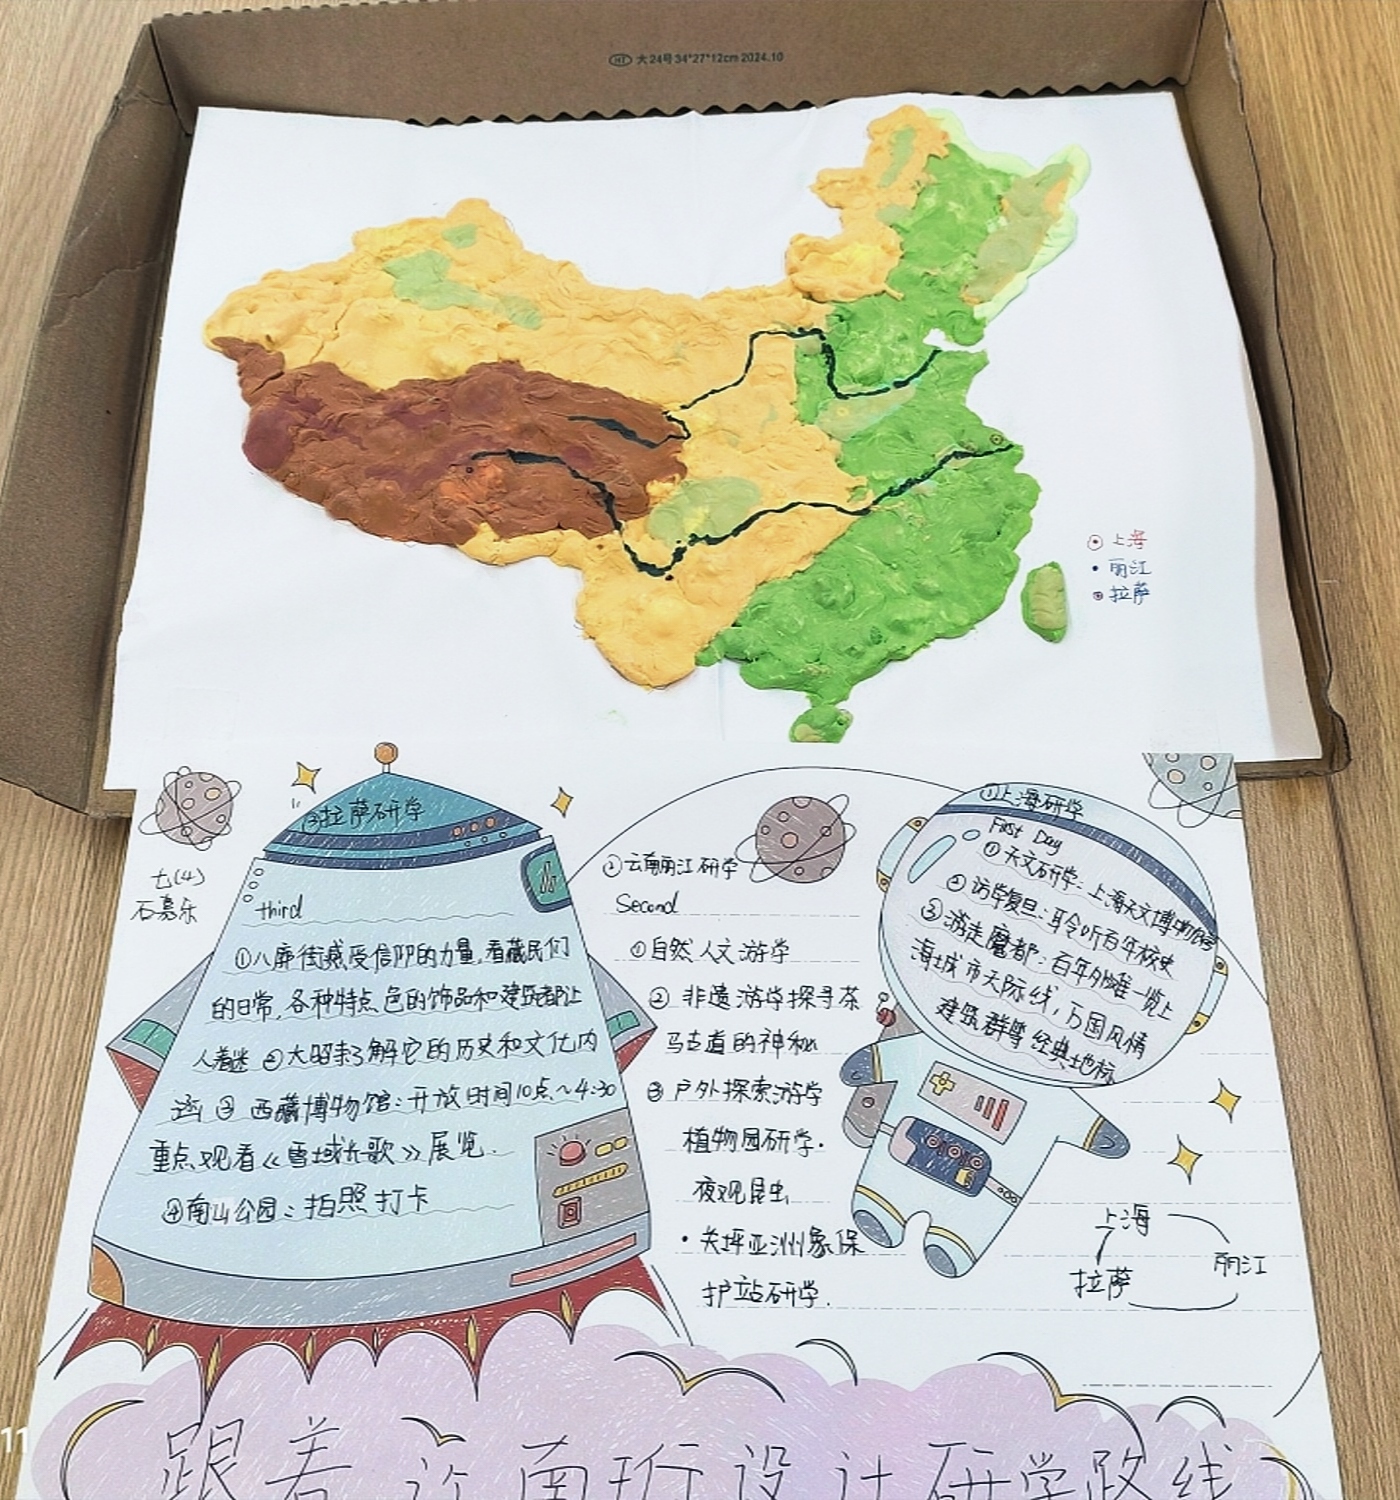 HT 大24号 34*27*12cm 2024.10
上海
丽江
拉萨
七(4)
石嘉乐
③拉萨研学
third
①八廓街感受信仰的力量,看藏民们
的日常,各种特点色的饰品和建筑都让
人着迷 ②大昭寺了解它的历史和文化内
涵 ③ 西藏博物馆:开放时间10点~4:30
重点观看《雪域长歌》展览.
④南山公园:拍照打卡
②云南丽江研学
Second
①自然人文游学
② 非遗游学探寻茶
马古道的神秘
③户外探索游学
植物园研学.
夜观昆虫
·关坪亚洲象保
护站研学.
①上海研学
First Day
①天文研学:上海天文博物馆
②访学复旦:聆听百年校史
③游走魔都:百年外滩一览上
海城市天际线,万国风情
建筑群等经典地标
上海
丽江
拉萨
11
跟着 南珩设计研学路线